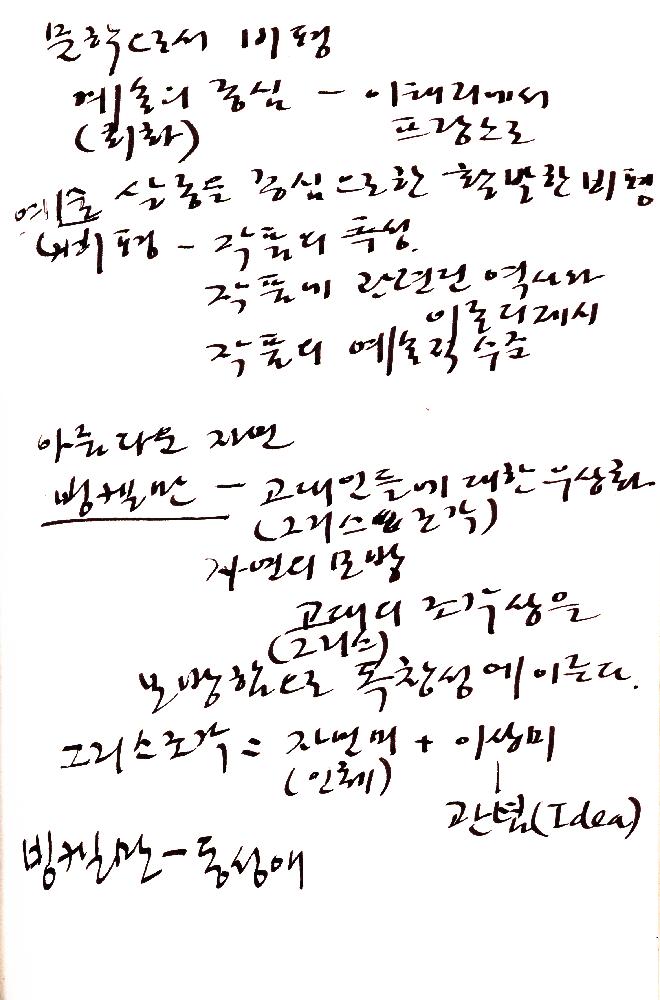 문학으로서 비평
예술의 중심 - 이태리에서
(회화) 프랑스로
예술 살롱을 중심으로한 활발한 비평
비평 - 작품의 특성.
작품에 관련된 역사와
이론의 제시
작품의 예술적 수준
아름다운 자연
빙켈만 - 고대인들에 대한 우상화
(그리스 조각)
자연의 모방
고대의 조각상을
(그리스)
모방함으로 독창성에 이른다.
그리스조각 = 자연미 + 이상미
(인체)
관념(Idea)
빙켈만 - 동성애